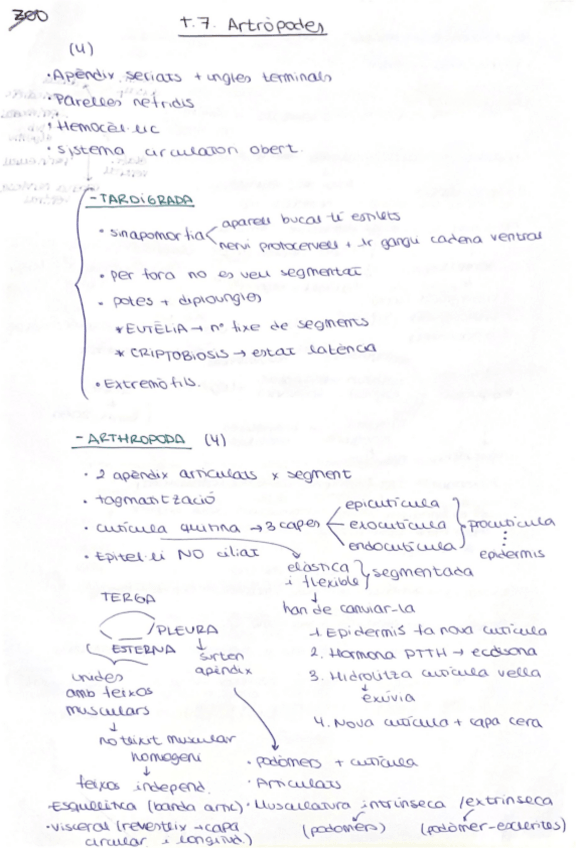 300
T.7. Artròpodes
(4)
· Apèndix seriats + ungles terminals
· Parelles nefridis
· Hemocèl·lic
· sistema circulatori obert.
- TARDIGRADA
· sinapomorfia
aparell bucal té estilets
nervi protocervell + 1r gangli cadena ventral
· per fora no es veu segmentat
· potes + diploungles
* EUTÈLIA → nº fixe de segments
* CRIPTOBIOSIS → estat latència
· Extremòfils.
- ARTHROPODA (4)
· 2 apèndix articulats x segment
· tagmantzació
· cutícula quitina → 3 capes
epicutícula
exocutícula
endocutícula
procutícula
epidermis
· Epitel·li NO ciliat
elàstica
i flexible
segmentada
han de canviar-la
1. Epidermis fa nova cutícula
2. Hormona PTTH → ecdisona
3. Hidrolitza cutícula vella
exúvia
4. Nova cutícula + capa cera
TERGA
PLEURA
ESTERNA
surten
apèndix
unides
amb feixos
musculars
no teixit muscular
homogeni
feixos independ.
· podòmers + cutícula
· Articulats
· Esquelètica (banda artic)
· Musculatura intrínseca / extrínseca
(podòmers)
(podòmer-esclerites)
· visceral (reventeix → capa
circular i longitud.)